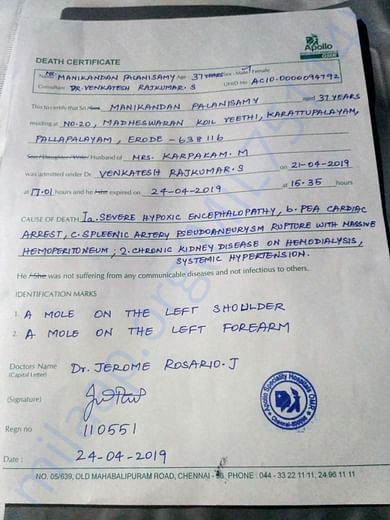 Apollo
DEATH CERTIFICATE
Mr. MANIKANDAN PALANISAMY Age : 37 YEARS Sex - Male / Female
Consultant DR. VENKATESH RAJKUMAR. S UHID No : AC10-0000094792
This to certify that Sri MANIKANDAN PALANISAMY aged 37 YEARS
residing at NO-20, MADHESWARAN KOIL VEETHI, KARATTUPALAYAM,
PALLAPALAYAM, ERODE - 638 116
Son / Daughter / Wife / Husband of MRS. KARPAKAM. M
was admitted under Dr VENKATESH RAJKUMAR. S on 21-04-2019
at 17.01 hours and he /she expired on 24-04-2019 at 16-35 hours
CAUSE OF DEATH Ia. SEVERE HYPOXIC ENCEPHALOPATHY, b. PEA CARDIAC
ARREST, C. SPLEENIC ARTERY PSEUDOANEURYSM RUPTURE WITH MASSIVE
HEMOPERITONEUM ; 2. CHRONIC KIDNEY DISEASE ON HEMODIALYSIS,
SYSTEMIC HYPERTENSION.
He /She was not suffering from any communicable diseases and not infectious to others.
IDENTIFICATION MARKS
1. A MOLE ON THE LEFT SHOULDER
2. A MOLE ON THE LEFT FOREARM
Doctors Name Dr. JEROME ROSARIO. J
(Capital Letter)
(Signature)
Regn no 110551
Date : 24-04-2019
Apollo Speciality Hospitals OMR
Chennai
NO. 05/639, OLD MAHABALIPURAM ROAD, CHENNAI - PHONE : 044 - 33 22 11 11, 24 96 11 11
milaap.org